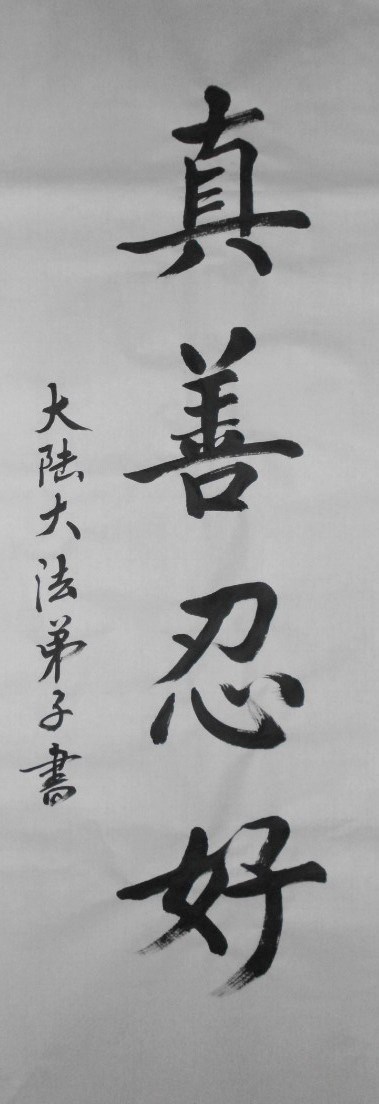 真善忍好
大陆大法弟子書